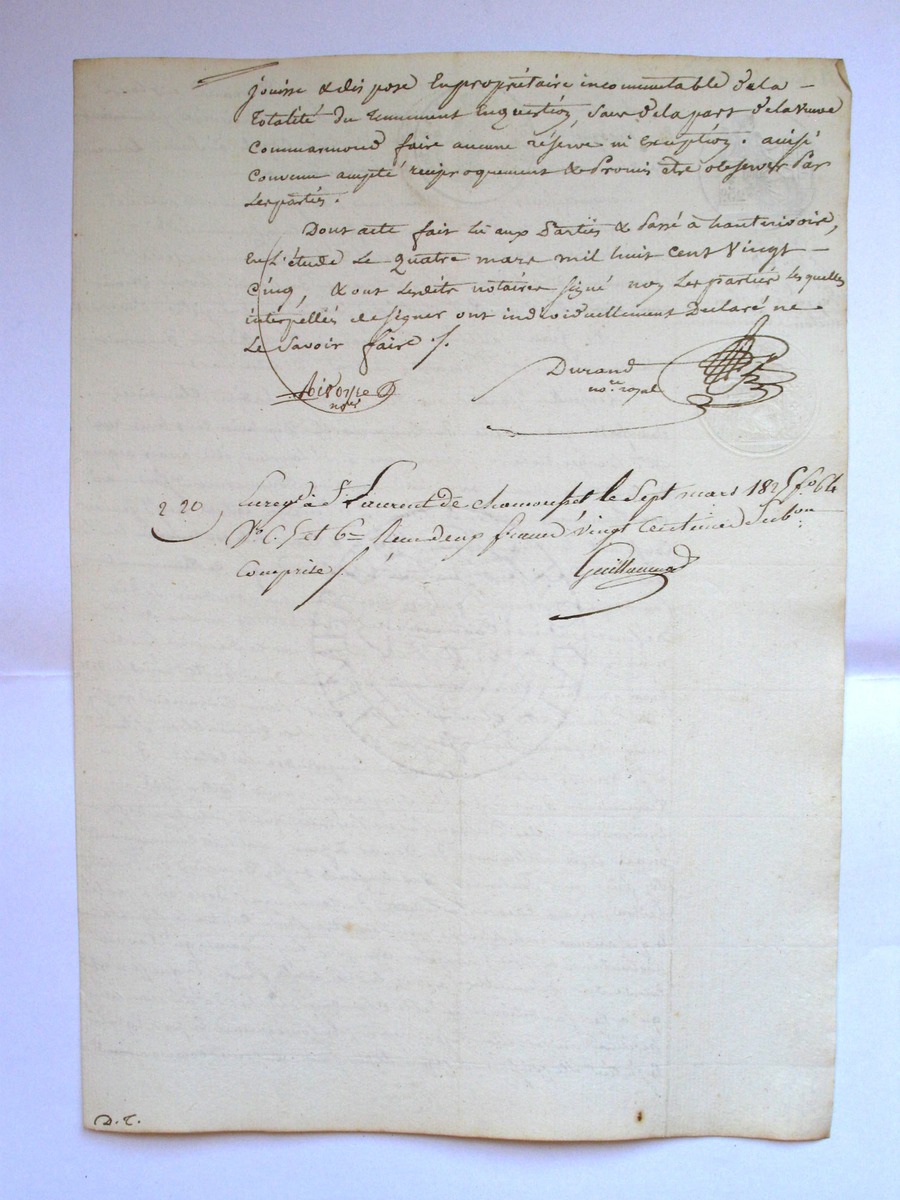 jouisse & dispose en propriétaire incommutable de la
totalité du tennement en question, sans de la part de la veuve
Commarmond faire aucune réserve ni exception. ainsi
convenu accepté réciproquement & promis être observer par
les parties.
Dont acte fait lu aux parties & passé à hauterivoire,
en l'étude le quatre mars mil huit cent vingt
cinq, & ont lesdits notaires signé non les parties lesquelles
interpellés de signer ont individuellement déclaré ne
le savoir faire /.
Durand
no.re royal
no.re
2 20 Enreg.é à S.t Laurent de chamousset le sept mars 1825 f.o 64
V.o C. 5 et 6 Reçu deux francs vingt centimes sub.on
comprise /.
Guillaumod
D. T.